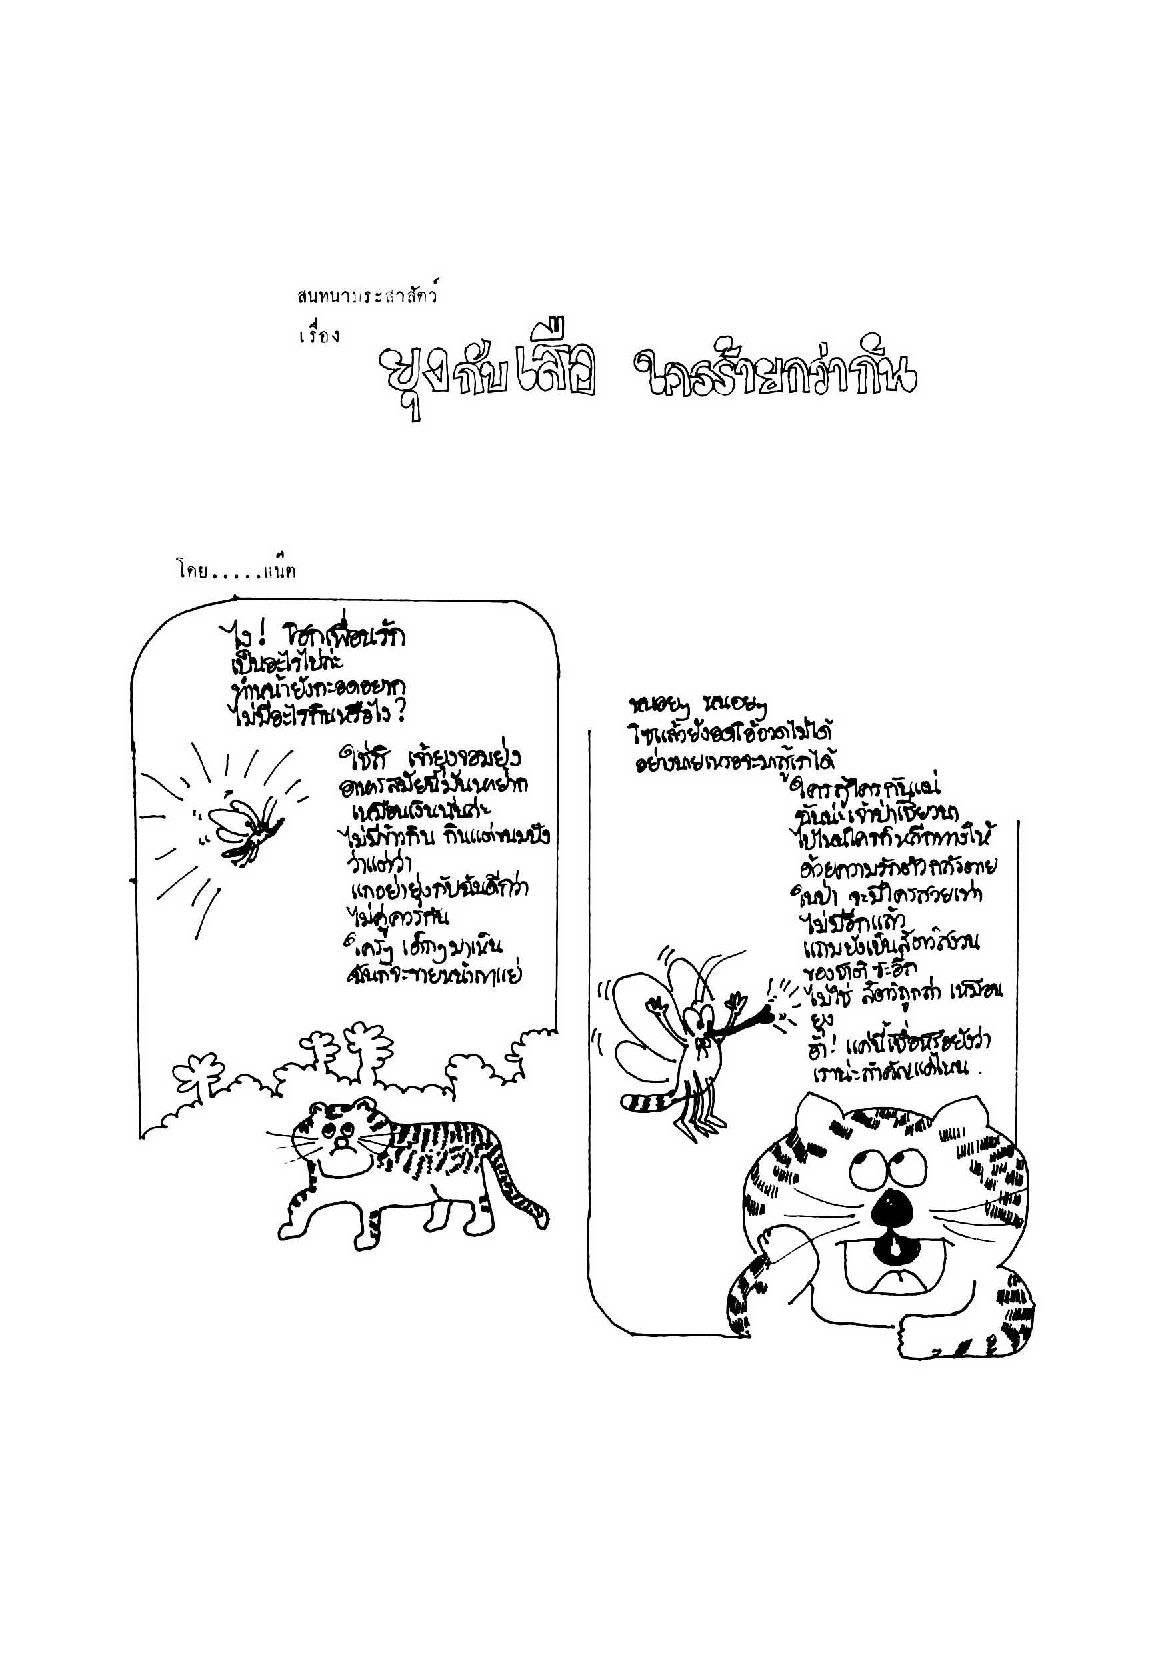 สนทนาประสาสัตว์
เรื่อง
ยุงกับเสือ ใครร้ายกว่ากัน
โดย.....แน๊ต
ไง! เพื่อนรัก
เป็นอะไรไปล่ะ
ทำหน้ายังกะอดอยาก
ไม่มีอะไรกินหรือไง?
ใช่สิ เจ้ายุงจอมยุ่ง
อาหารสมัยนี้มันหายาก
เหมือนเงินนั่นล่ะ
ไม่มีข้าวกิน กินแต่ขนมปัง
ว่าแต่ว่า
แกอย่ายุ่งกับฉันดีกว่า
ไม่คู่ควรกัน
ใครๆ เล็กๆ มาเห็น
ฉันก็จะขายหน้ากาแย่
หนอยๆ หนอยๆ
โซแล้วยังอดโอ้อวดไม่ได้
อย่างนายเหรอจะมาสู้เราได้
ใครสู้ใครกันแน่
ฉันน่ะเจ้าป่าเชียวนา
ไปไหนใครก็หลีกทางให้
ด้วยความรักตัวกลัวตาย
ในป่า จะมีใครสวยเท่า
ไม่มีอีกแล้ว
แถมยังเป็นสัตว์สงวน
ของชาติซะอีก
ไม่ใช่ สัตว์ถูกล่า เหมือน
ยุง
ฮ้า! แค่นี้เชื่อหรือยังว่า
เราน่ะสำคัญแค่ไหน.